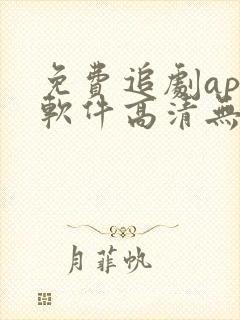 免費追劇ap
軟件高清無
月菲帆